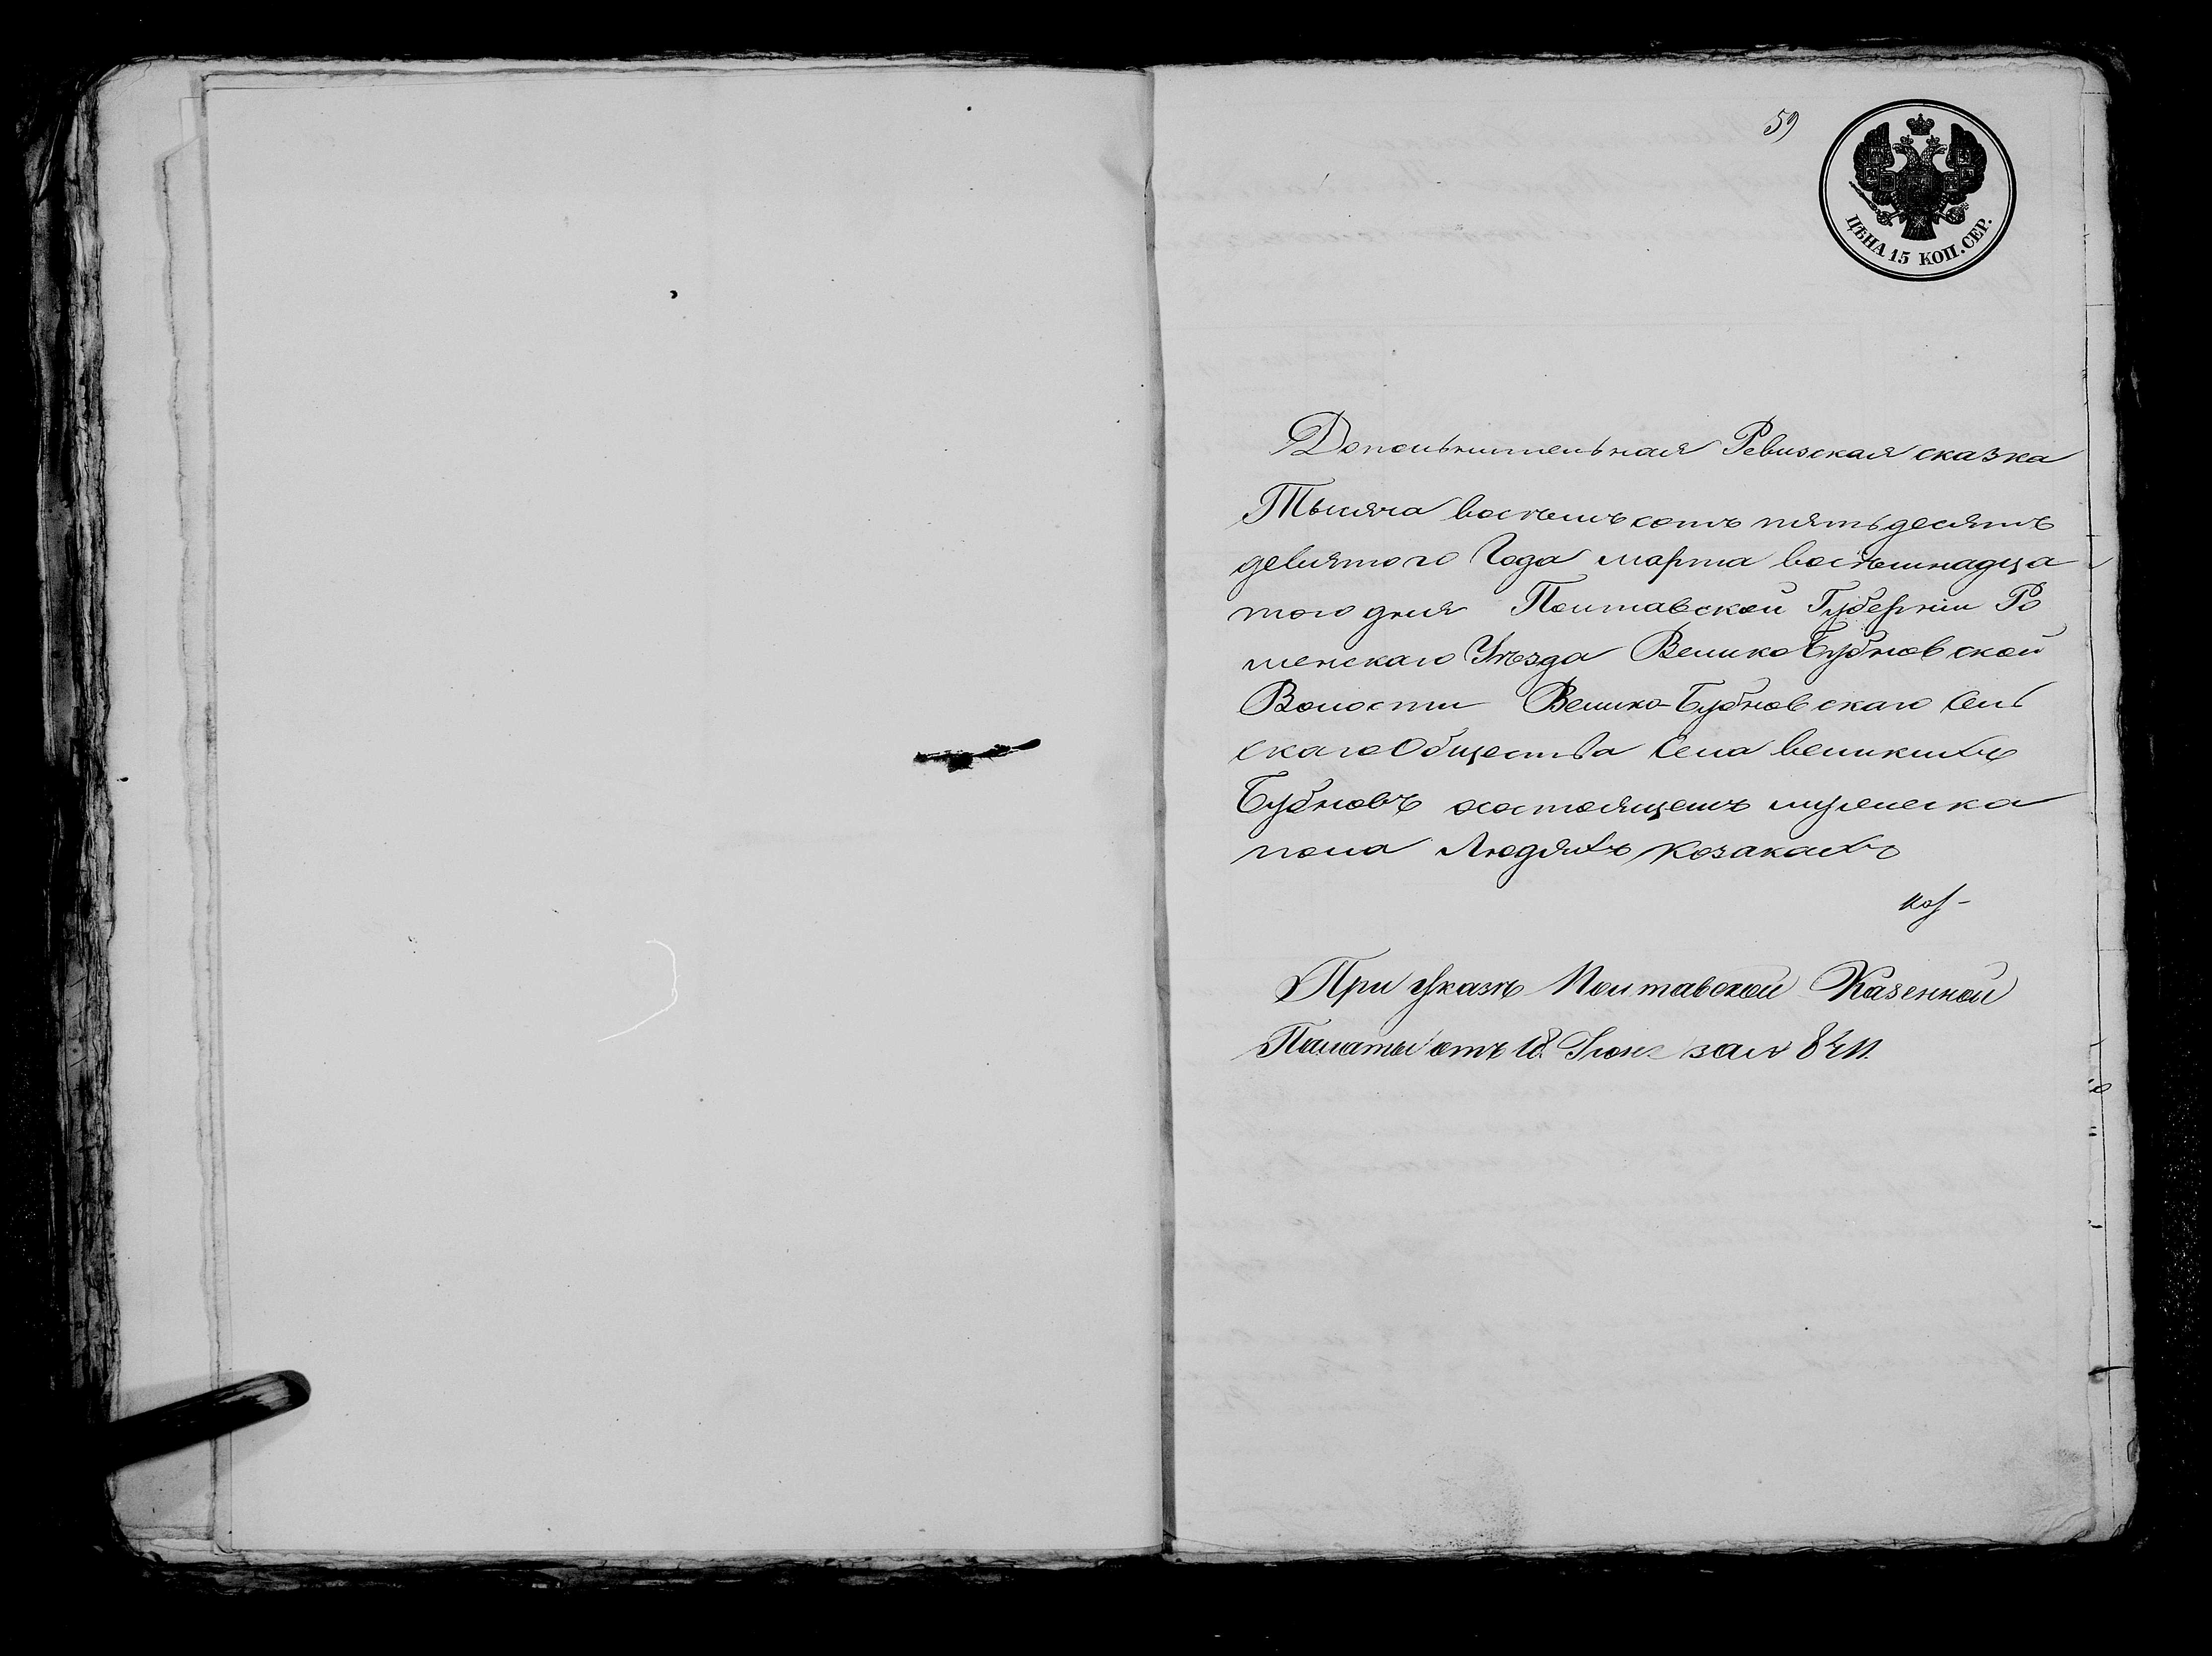 59
ЦѢНА 15 КОП. СЕР.
Дополнительная Ревизская сказка
Тысяча восѣмъ сотъ пятьдесятъ
девятого Года марта восѣмнадца
того дня Полтавской Губерніи Ро
менскаго Уѣзда Велико Бубновской
Волости Велико-Бубновскаго Сель
скаго Общества Села великихъ
Бубновъ состоящемъ мужеска
пола Людяхъ козакахъ
При Указѣ Полтавской Казенной
Палаты отъ 18 Іюня за №